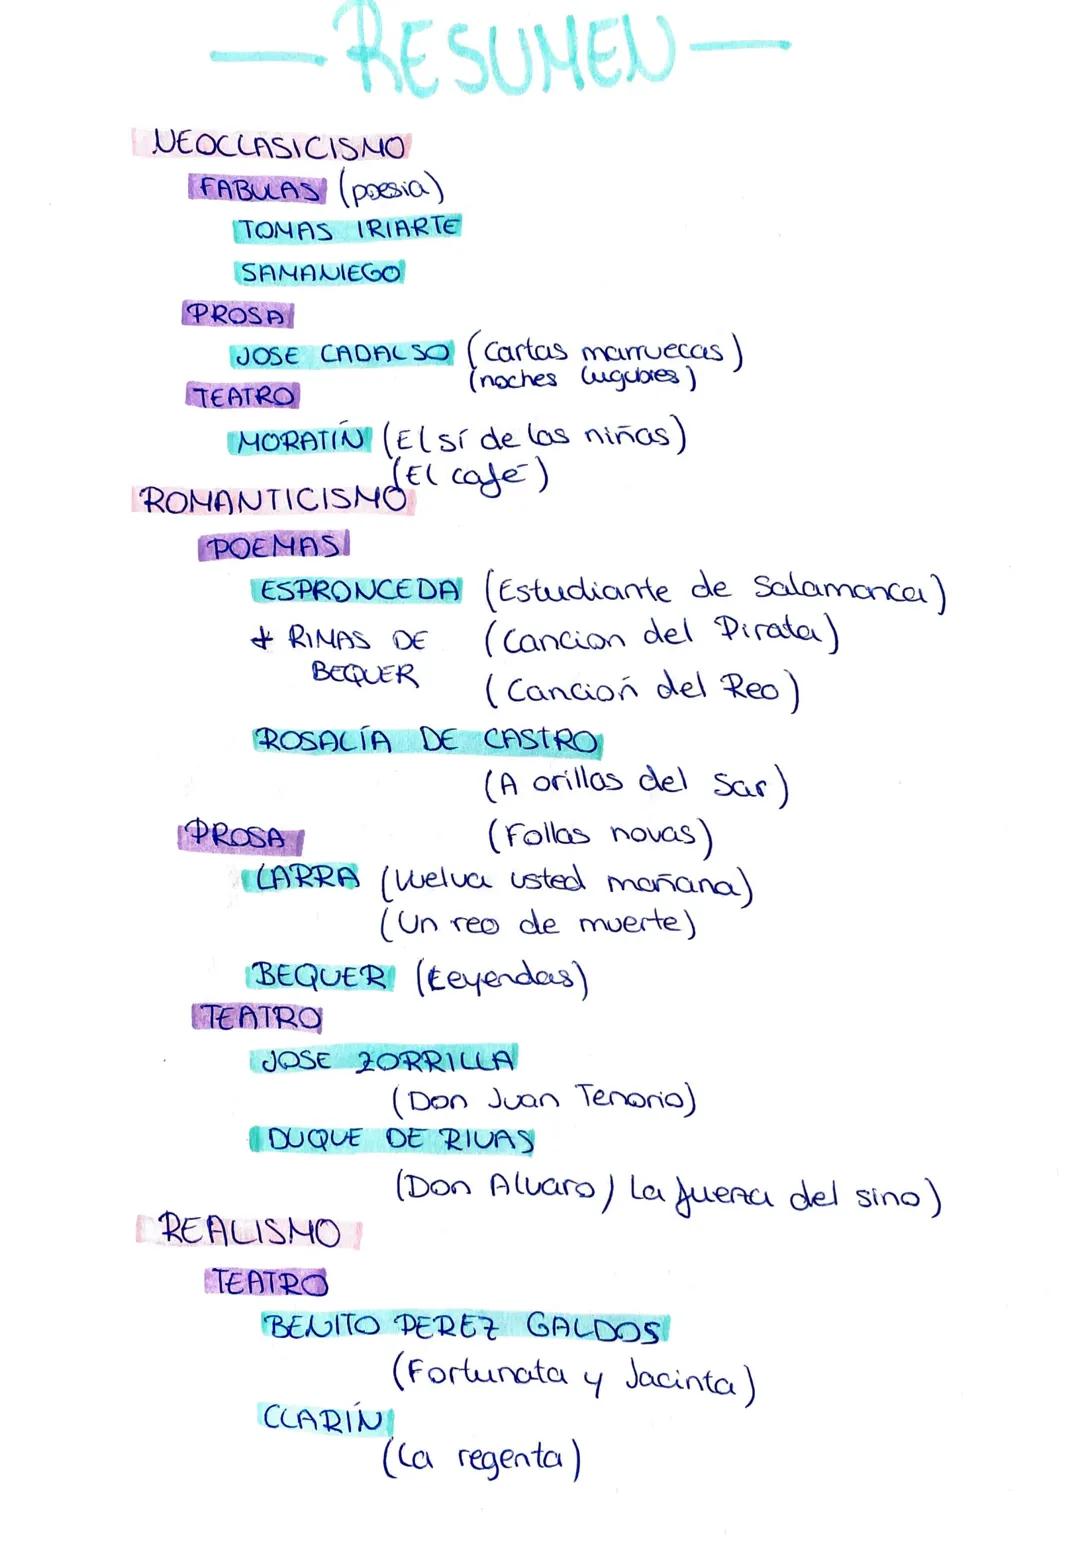 RESUMEN
NEOCLASICISMO
FABULAS (poesia)
TOMAS IRIARTE
SAMANIEGO
PROSA
JOSE CADALSO (Cartas marruecas)
(noches lugubres)
TEATRO
MORATÍN (El sí de las niñas)
(El café)
ROMANTICISMO
POEMAS
ESPRONCEDA (Estudiante de Salamanca)
+ RIMAS DE (Cancion del Pirata)
BEQUER
(Canción del Reo)
ROSALÍA DE CASTRO
(A orillas del Sar)
PROSA (Follas novas)
LARRA (Vuelva usted mañana)
(Un reo de muerte)
BEQUER (Leyendas)
TEATRO
JOSE ZORRILLA
(Don Juan Tenorio)
DUQUE DE RIVAS
(Don Alvaro / La fuerza del sino)
REALISMO
TEATRO
BENITO PEREZ GALDOS
(Fortunata y Jacinta)
CLARÍN
(La regenta)